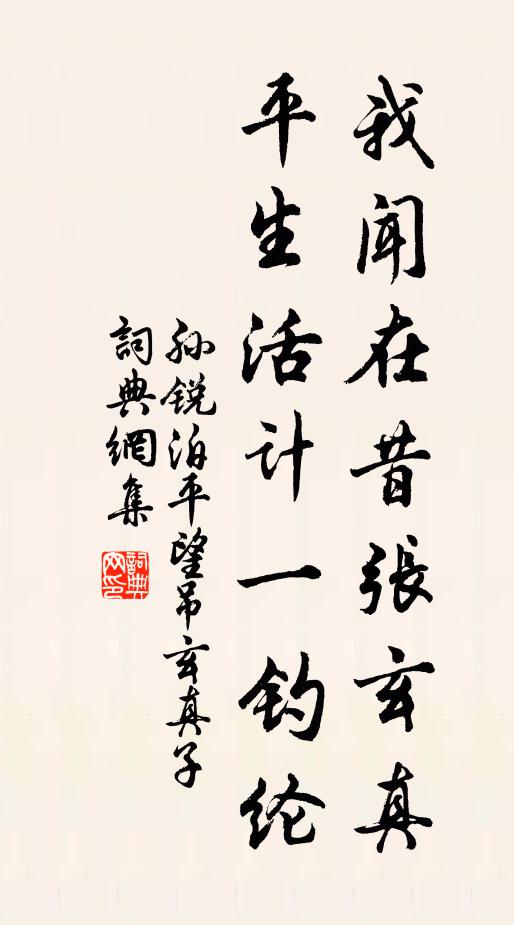 我闻在昔張玄真
平生活计一钓纶
孙锐泊平望吊玄真子
詞典網集
詞典网印